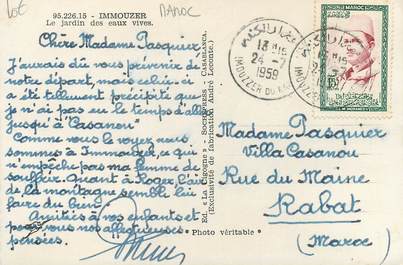 Lot
MAROC
95.226.15 - IMMOUZER
Le jardin des eaux vives.
Chère Madame Pasquier
J'aurais dû vous prévenir de
notre départ, mais celui-ci a
été tellement précipité que
je n'ai pas eu le temps d'aller
jusqu'à "Casanou"
Comme vous le voyez nous
sommes à Immouzer, ce qui
n'empêche pas ma femme de
souffrir. Quant à Roger l'air
de la montagne semble lui
faire du bien.
Amitiés à vos enfants et
pour vous nos affectueuses
pensées.
Ed. "La Cigogne" - SOCHEPRESS - CASABLANCA.
(Exclusivité de fabrication André Leconte)
"Photo véritable"
13H15
24-7
1959
IMOUZER DU
Madame Pasquier
Villa Casanou
Rue du Maine
Rabat
(Maroc)